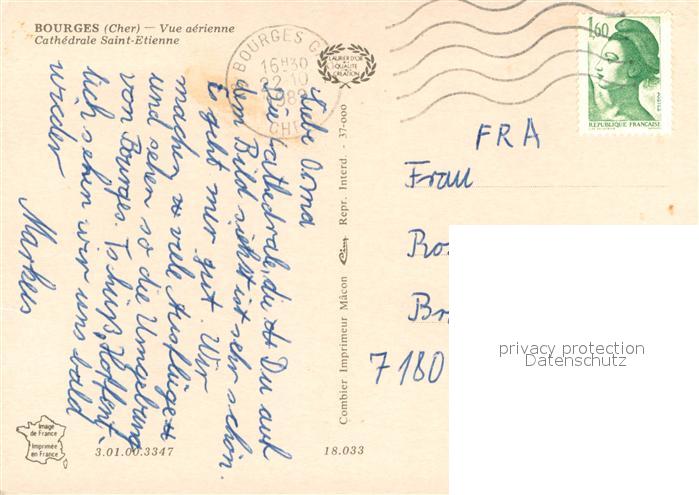 BOURGES (Cher) — Vue aérienne
Cathédrale Saint-Etienne
BOURGES
16H30
22-10
CHER
LAURIER D'OR
QUALITÉ
CRÉATION
1,60
POSTES
REPUBLIQUE FRANÇAISE
Liebe Oma
Die Kathedrale, die Du auf
dem Bild siehst ist sehr schön.
Es geht mir gut. Wir
machen viele Ausflüge
und sehen so die Umgebung
von Bourges. Tschüß, Hoffent-
lich sehen wir uns bald
wieder
Markus
Combier Imprimeur Mâcon Cim Repr. Interd. - 37-000
FRA
Frau
Ro
B
7180
privacy protection
Datenschutz
Image
de France
Imprimée
en France
3.01.00.3347
18.033